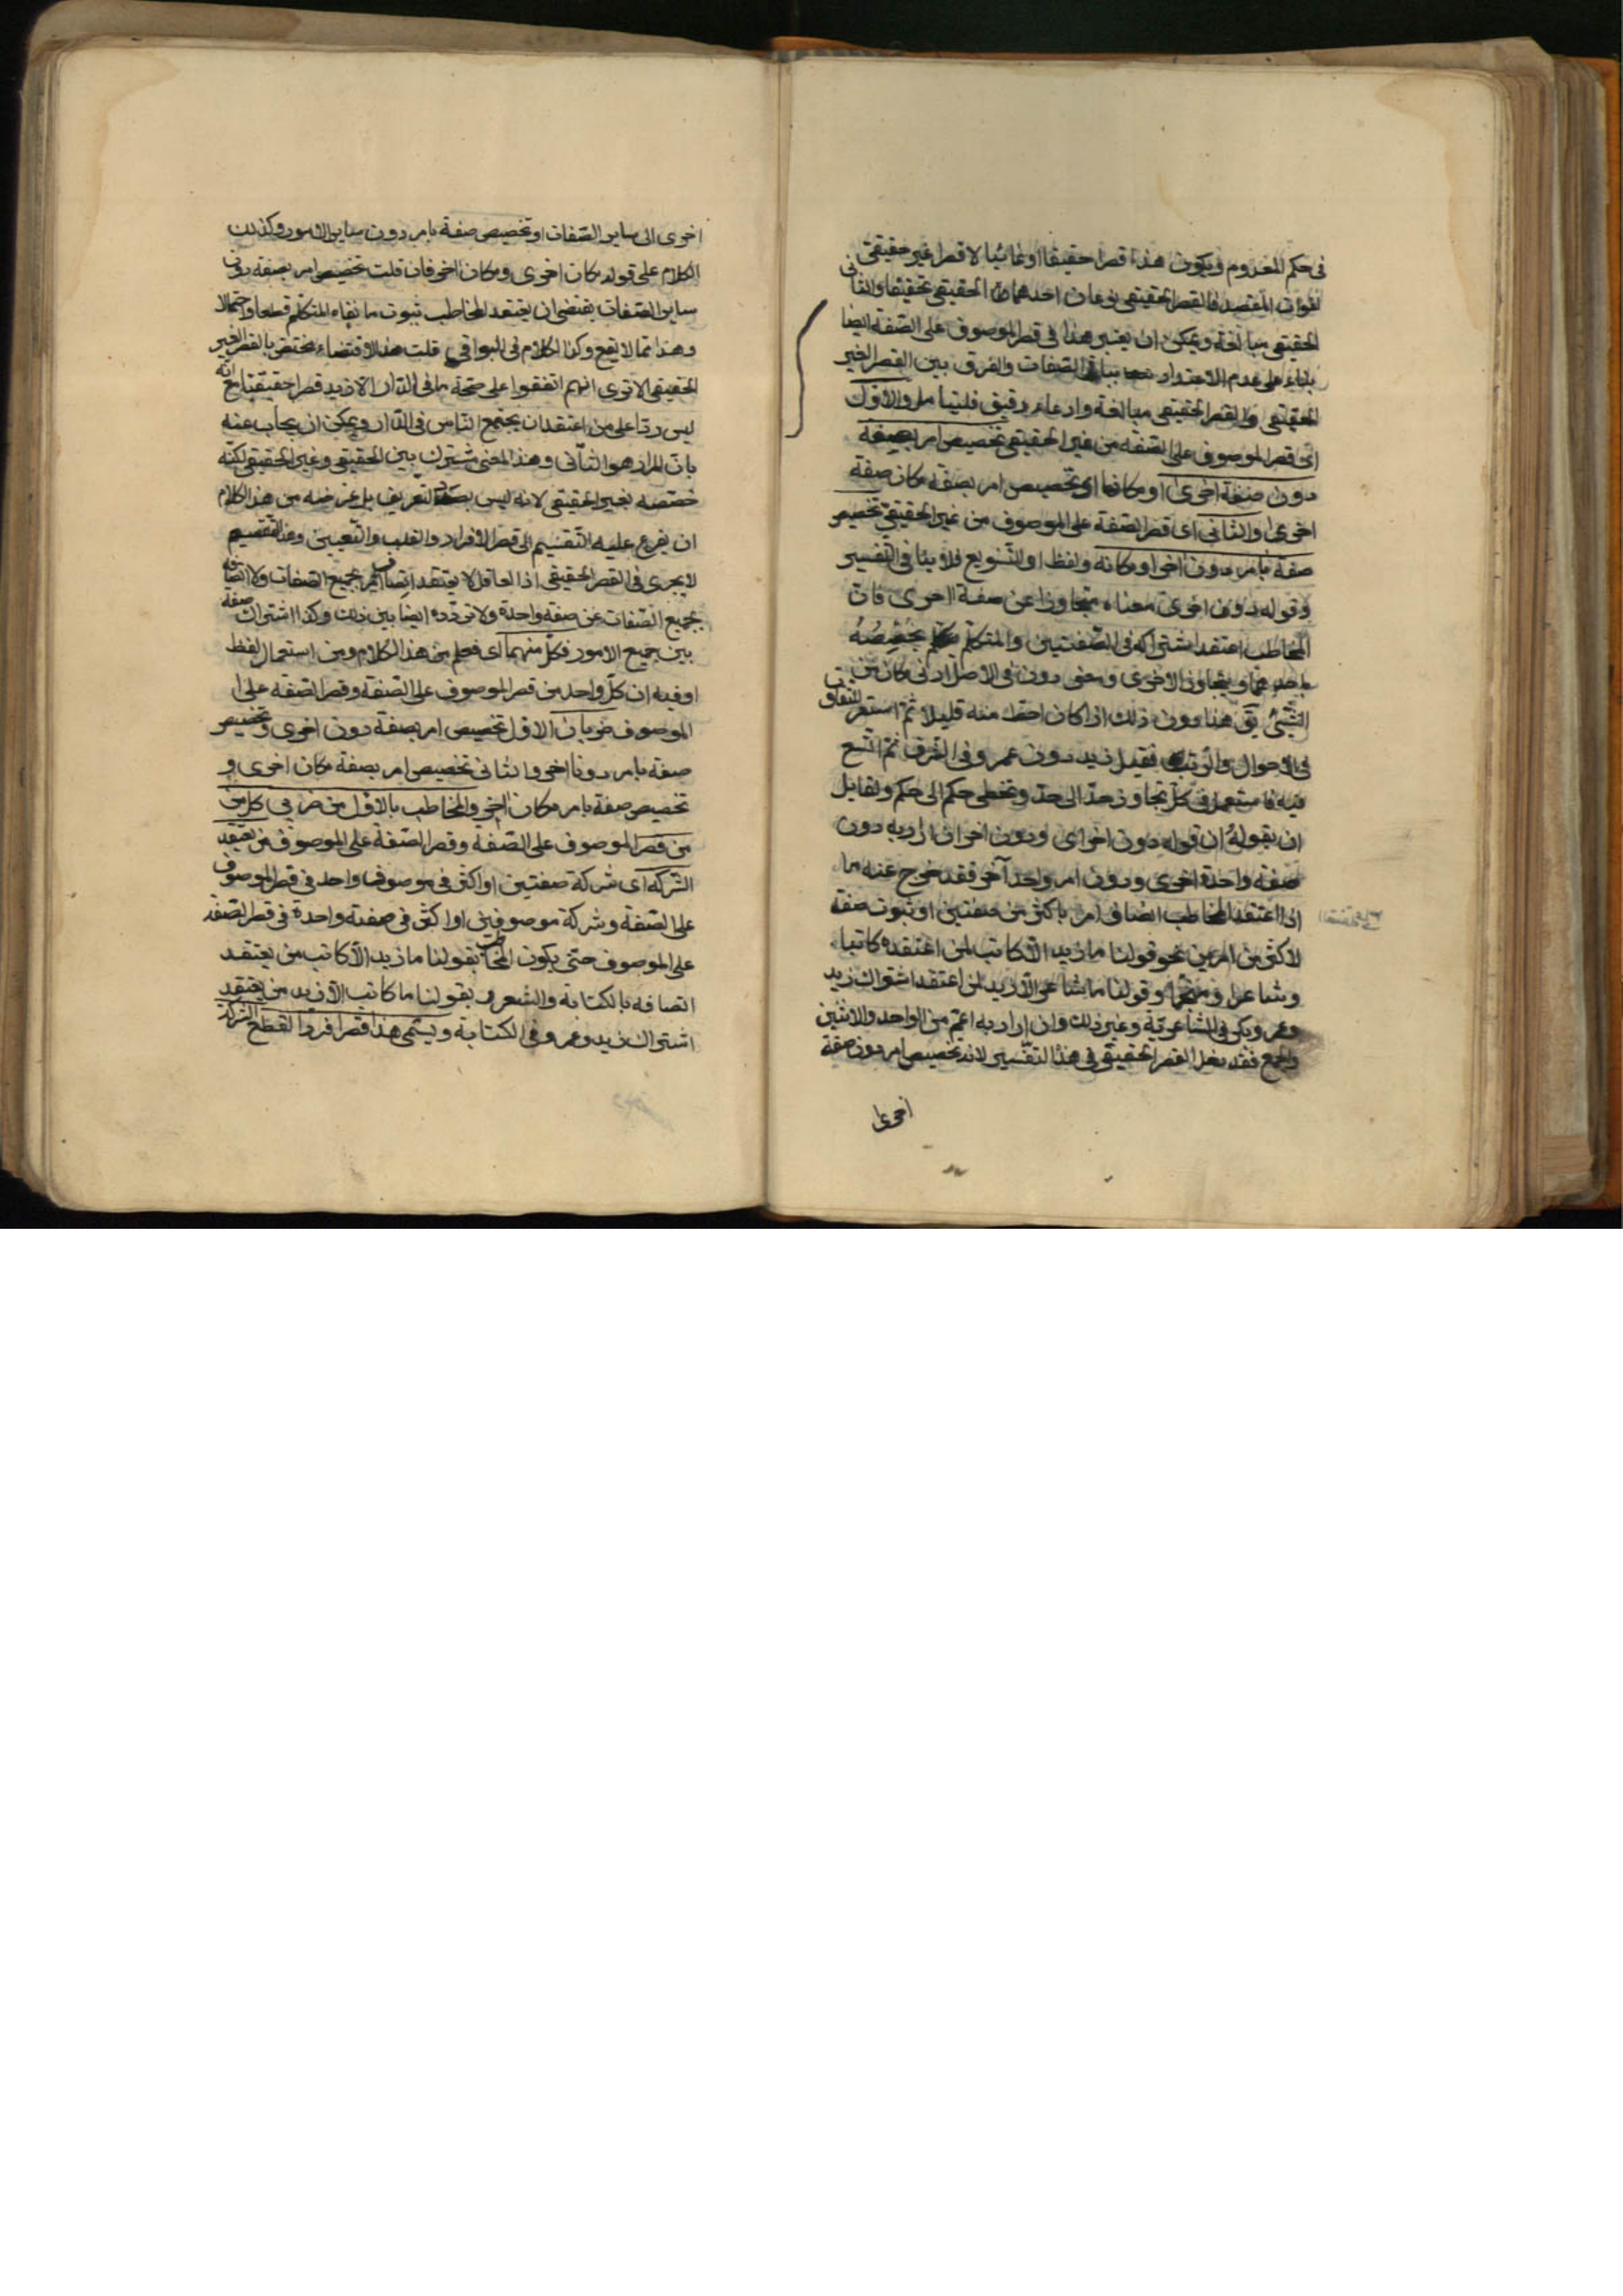 فى حكم المعدوم ويكون هذا قصرا حقيقيا ادعائيا لا قصرا غير حقيقى
لفوات المقصد فالقصر الحقيقى نوعان احدهما الحقيقى تحقيقا والثانى
الحقيقى مبالغة ويمكن ان يعتبر هذا فى قصر الموصوف على الصفة ايضا
بناء على عدم الاعتداد بباقى الصفات والفرق بين القصر الغير
الحقيقى والقصر الحقيقى مبالغة وادعاء دقيق فليتامل والاول
اى قصر الموصوف على الصفة من غير الحقيقى تخصيص امر بصفة
دون صفة اخرى او مكانها اى تخصيص امر بصفة مكان صفة
اخرى والثانى اى قصر الصفة على الموصوف من غير الحقيقى تخصيص
صفة بامر دون اخر او مكانه ولفظ او للتنويع فلا ينافى التفسير
وقوله دون اخرى معناه متجاوزا عن صفة اخرى فان
المخاطب اعتقد اشتراكه فى الصفتين والمتكلم يخصصه
باحديهما ويتجاوز الاخرى ومعنى دون فى الاصل ادنى مكان من
الشئ يق هذا دون ذلك اذا كان احط منه قليلا ثم استعير للتفاوت
فى الاحوال والرتب فقيل زيد دون عمرو فى الشرف ثم اتسع
فيه فاستعمل فى كل تجاوز حد الى حد وتخطى حكم الى حكم ولقايل
ان يقول ان قوله دون اخرى ودون اخر ان اراد به دون
صفة واحدة اخرى ودون امر واحد آخر فقد خرج عنه ما
اذا اعتقد المخاطب اتصاف امر باكثر من صفتين او ثبوت صفة
لاكثر من امرين نحو قولنا ما زيد الا كاتب لمن اعتقده كاتبا
وشاعرا ومنجما وقولنا ما شاعر الا زيد لمن اعتقد اشتراك زيد
وعمرو وبكر فى الشاعرية وغير ذلك وان اراد به اعم من الواحد والاثنين
والجمع فقد دخل القصر الحقيقى فى هذا التفسير لانه تخصيص امر دون صفة
اخرى
اخرى الى ساير الصفات او تخصيص صفة بامر دون ساير الامور وكذلك
الكلام على قوله مكان اخرى ومكان اخر فان قلت تخصيص امر بصفة دون
ساير الصفات يقتضى ان يعتقد المخاطب ثبوت ما نفاه المتكلم قطعا واحتمالا
وهذا مما لا يقع وكذا الكلام فى البواقى قلت هذا الاقتضاء مختص بالقصر الغير
الحقيقى الا ترى انهم اتفقوا على صحة ما فى الدار الا زيد قصرا حقيقيا مع انه
ليس ردا على من اعتقد ان جميع الناس فى الدار ويمكن ان يجاب عنه
بان المراد هو الثانى وهذا المعنى مشترك بين الحقيقى وغير الحقيقى لكنه
خصصه بغير الحقيقى لانه ليس بصدد التعريف بل غرضه من هذا الكلام
ان يفرع عليه التقسيم الى قصر الافراد والقلب والتعيين وهذا التقسيم
لا يجرى فى القصر الحقيقى اذ العاقل لا يعتقد اتصاف امر بجميع الصفات ولا اتصافه
بجميع الصفات غير صفة واحدة ولا تردده ايضا بين ذلك وكذا اشتراك صفة
بين جميع الامور فكل منهما اى فعلم من هذا الكلام ومن استعمال لفظ
او فيه ان كل واحد من قصر الموصوف على الصفة وقصر الصفة على
الموصوف ضربان الاول تخصيص امر بصفة دون اخرى وتخصيص
صفة بامر دون اخر والثانى تخصيص امر بصفة مكان اخرى و
تخصيص صفة بامر مكان اخر والمخاطب بالاول من ضربى كل من
من قصر الموصوف على الصفة وقصر الصفة على الموصوف من يعتقد
الشركة اى شركة صفتين او اكثر فى موصوف واحد فى قصر الموصوف
على الصفة وشركة موصوفين او اكثر فى صفة واحدة فى قصر الصفة
على الموصوف حتى يكون المخاطب بقولنا ما زيد الا كاتب من يعتقد
اتصافه بالكتابة والشعر وبقولنا ما كاتب الا زيد من يعتقد
اشتراك زيد وعمرو فى الكتابة ويسمى هذا قصر افراد لقطع الشركة